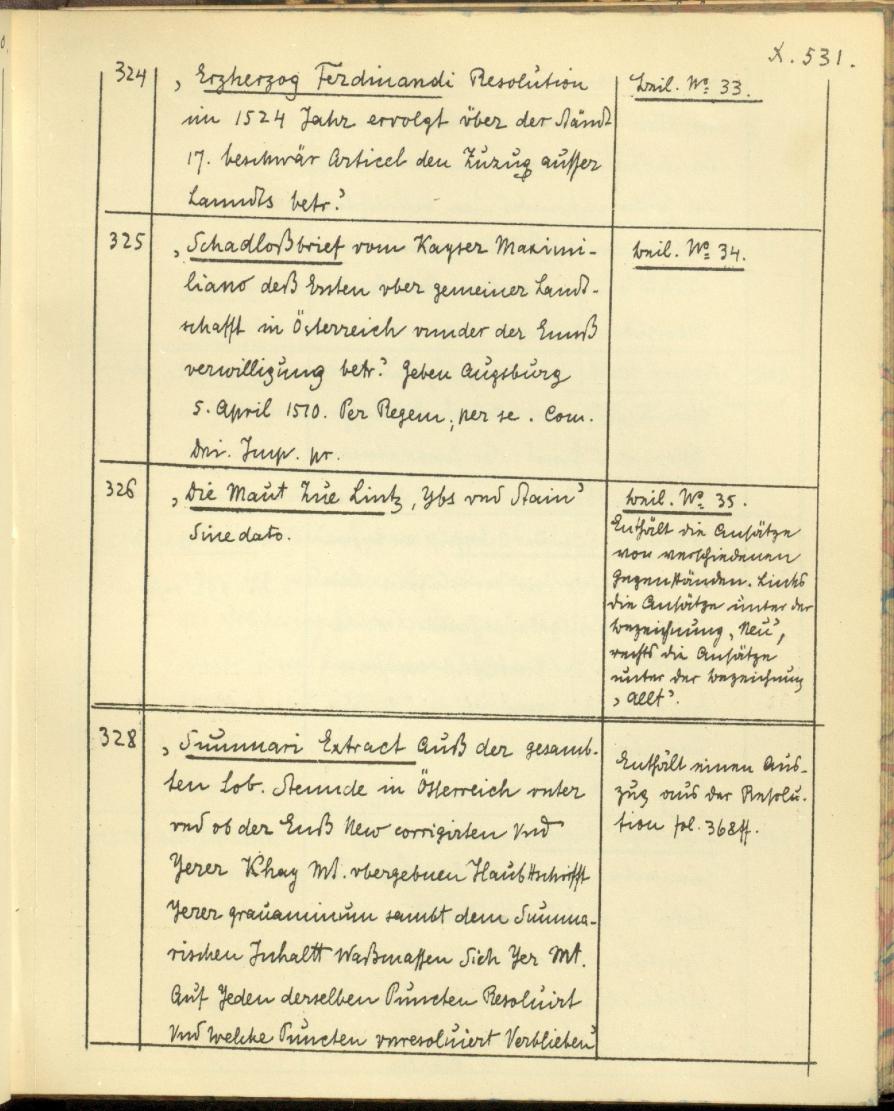 X. 531.
324
„Erzherzog Ferdinandi Resolution
im 1524 Jahr ervolgt über der Ständt
17. beschwär Articel den Zuzug ausser
Lanndts betr.“
Beil. No 33.
325
„Schadloßbrief vom Kayser Maximi-
liano deß Ersten vber gemeiner Landt-
schafft in Österreich vnnder der Ennß
verwilligung betr.“ Geben Augsburg
5. April 1510. Per Regem, per se. Com.
Dni. Imp. pr.
Beil. No 34.
326
„Die Maut Zue Lintz, Ybs vnd Stain“
Sine dato.
Beil. No 35.
Enthält die Ansätze
von verschiedenen
Gegenständen. Links
die Ansätze unter der
Bezeichnung „Neu“,
rechts die Ansätze
unter der Bezeichnung
„Allt“.
328
„Summari Extract Auß der gesamb-
ten Lob. Stennde in Österreich vnter
vnd ob der Enß New corrigirten Vnd
Yerer Khay Mt. vbergebnen Haubttschrifft
Yerer grauaminum sambt dem Summa-
rischen Inhaltt Waßmassen Sich Yer Mt.
Auf Jeden derselben Puncten Resoluirt
Vnd Welche Puncten vnresoluiert Verblieben“
Enthält einen Aus-
zug aus der Resolu-
tion fol. 368ff.